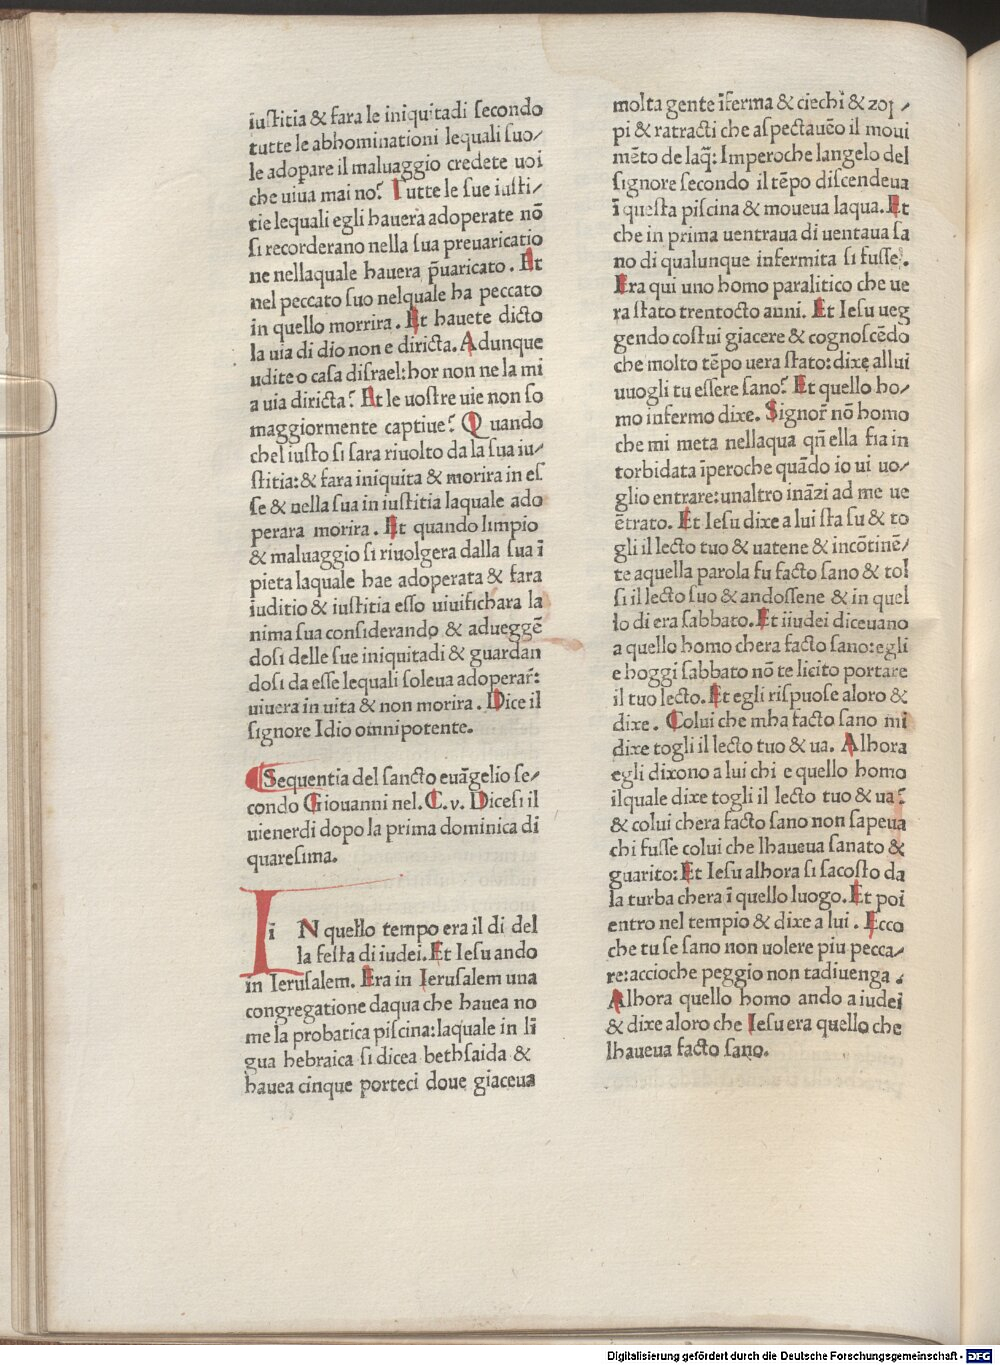 iuſtitia & fara le iniquitadi ſecondo
tutte le abhominationi lequali ſuo/
le adopare il maluaggio credete uoi
che uiua mai no? Tutte le ſue iuſti/
tie lequali egli hauera adoperate nō
ſi recorderano nella ſua preuaricatio
ne nellaquale hauera p̄uaricato. Et
nel peccato ſuo nelquale ha peccato
in quello morrira. Et hauete dicto
la uia di dio non e diricta. Adunque
udite o caſa diſrael: hor non ne la mi
a uia diricta? At le uoſtre uie non ſo
maggiormente captiue? Quando
chel iuſto ſi ſara riuolto da la ſua iu/
ſtitia: & fara iniquita & morira in eſ
ſe & nella ſua in iuſtitia laquale ado
perara morira. Et quando limpio
& maluaggio ſi riuolgera dalla ſua ī
pieta laquale hae adoperata & fara
iuditio & iuſtitia eſſo uiuifichara la
nima ſua conſiderando & adueggē
doſi delle ſue iniquitadi & guardan
doſi da eſſe lequali ſoleua adoperar̄:
uiuera in uita & non morira. Dice il
ſignore Idio omnipotente.
Sequentia del ſancto euāgelio ſe/
condo Giouanni nel. C. v. Diceſi il
uienerdi dopo la prima dominica di
quareſima.
IN quello tempo era il di del
la feſta di iudei. Et Ieſu ando
in Ieruſalem. Era in Ieruſalem una
congregatione daqua che hauea no
me la probatica piſcina: laquale in lī
gua hebraica ſi dicea bethſaida &
hauea cinque porteci doue giaceua
molta gente īferma & ciechi & zop/
pi & ratracti che aſpectauēo il moui
mēto de laq̄: Imperoche langelo del
ſignore ſecondo il tēpo diſcendeua
ī queſta piſcina & moueua laqua. Et
che in prima uentraua di uentaua ſa
no di qualunque infermita ſi fuſſe.
Era qui uno homo paralitico che ue
ra ſtato trentocto anni. Et Ieſu ueg
gendo coſtui giacere & cognoſcēdo
che molto tēpo uera ſtato: dixe allui
uuogli tu eſſere ſano? Et quello ho/
mo infermo dixe. Signor̄ nō homo
che mi meta nellaqua qn̄ ella ſia in
torbidata īperoche quādo io ui uo/
glio entrare: unaltro ināzi ad me ue
ētrato. Et Ieſu dixe a lui ſta ſu & to
gli il lecto tuo & uatene & incōtinē/
te aquella parola fu facto ſano & tol
ſi il lecto ſuo & andoſſene & in quel
lo di era ſabbato. Et iiudei diceuano
a quello homo chera facto ſano: egli
e hoggi ſabbato nō te licito portare
il tuo lecto. Et egli riſpuoſe aloro &
dixe. Colui che mha facto ſano mi
dixe togli il lecto tuo & ua. Alhora
egli dixono a lui chi e quello homo
ilquale dixe togli il lecto tuo & ua?
& colui chera facto ſano non ſapeua
chi fuſſe colui che lhaueua ſanato &
guarito: Et Ieſu alhora ſi ſacoſto da
la turba chera ī quello luogo. Et poi
entro nel tempio & dixe a lui. Ecco
che tu ſe ſano non uolere piu pecca/
re: accioche peggio non tadiuenga.
Alhora quello homo ando a iudei
& dixe aloro che Ieſu era quello che
lhaueua facto ſano.
Digitalisierung gefördert durch die Deutsche Forschungsgemeinschaft - DFG